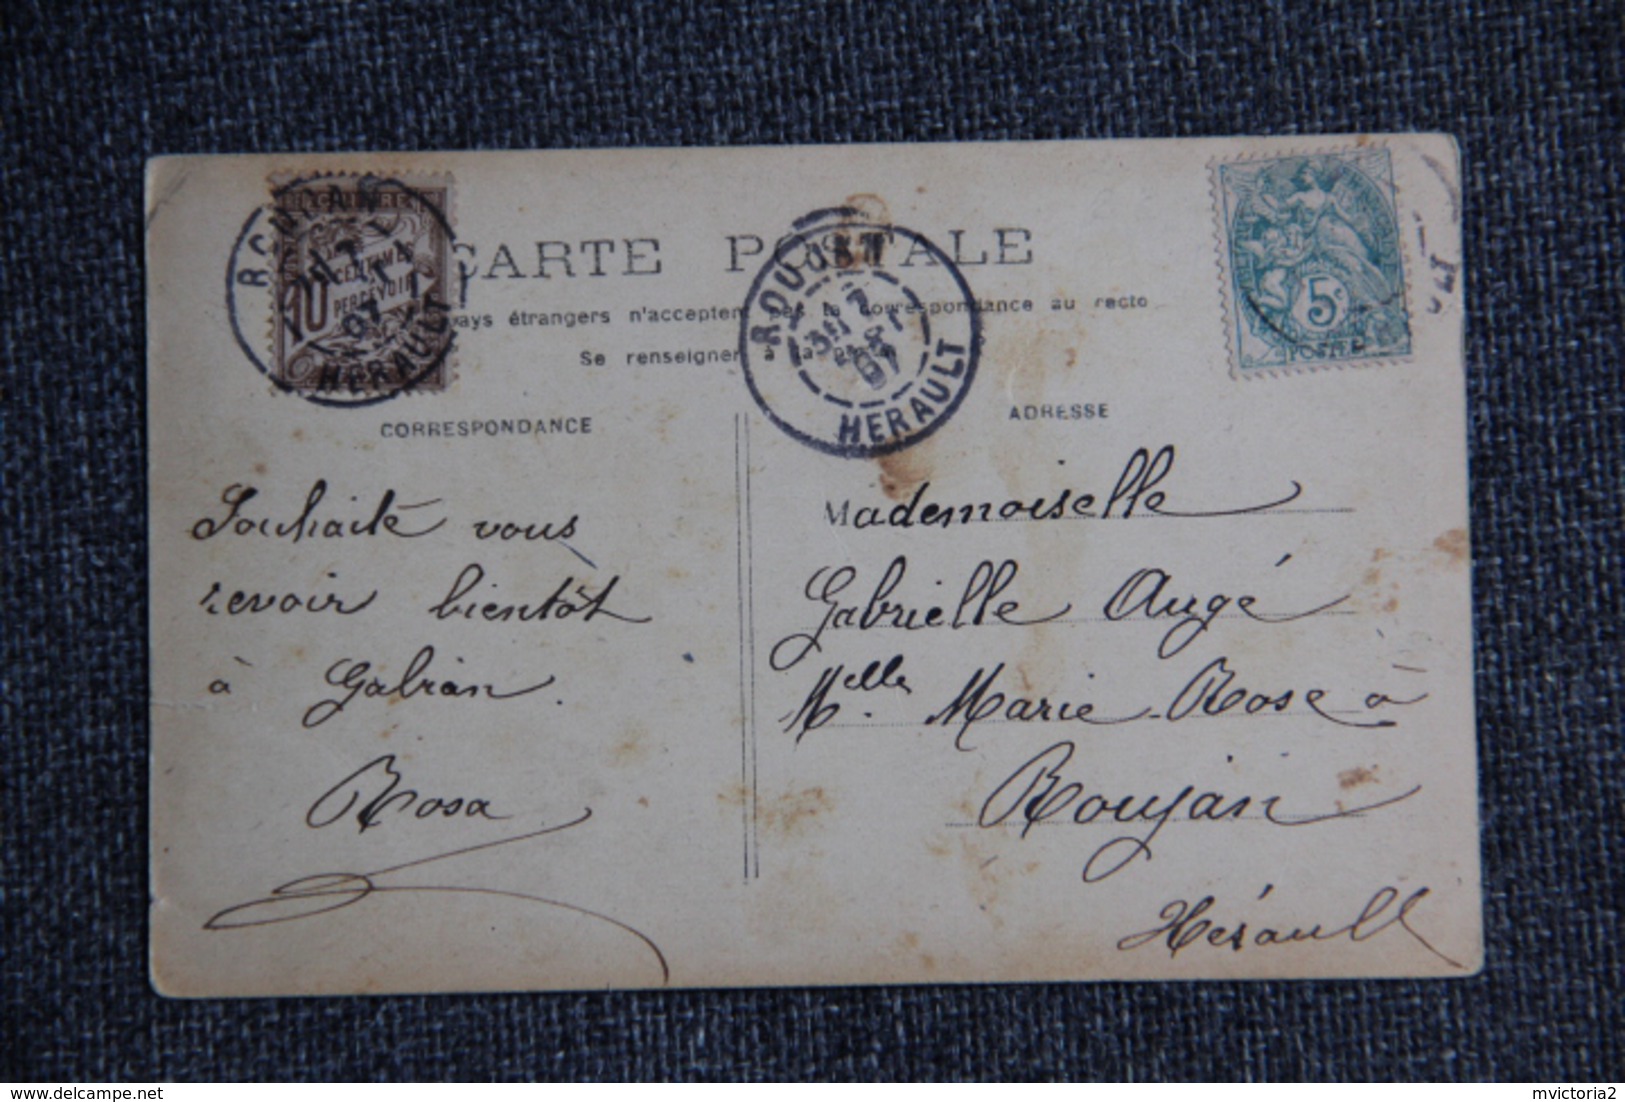 CARTE POSTALE
pays étrangers n'acceptent pas la correspondance au recto
Se renseigner à la
CORRESPONDANCE
ADRESSE
CENTIMES
10
PERCEVOIR
07
HERAULT
ROUJAN
07
HERAULT
5c
POSTES
Souhaite vous
revoir bientôt
à Gabian.
Rosa
Mademoiselle
Gabrielle Augé
Melle Marie Rose à
Roujan
Hérault
www.delcampe.net
mvictoria2